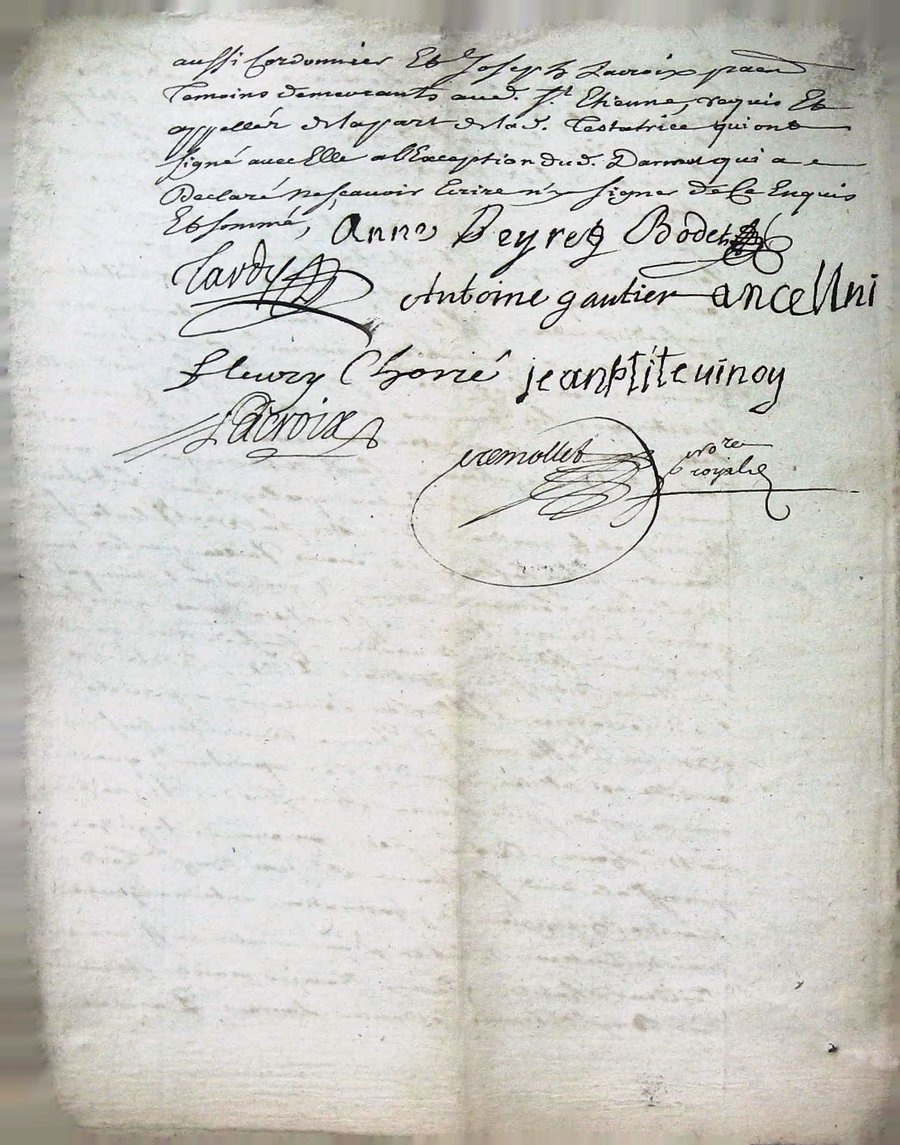 aussi Cordonnier Et Joseph Lacroix
Temoins demeurants aud. St. Etienne, requis Et
appellés de la part de lad. Testatrice qui ont
signé avec Elle a l'Exception dud. Darmu qui a
Declaré ne sçavoir Ecrire n'y signer de Ce Enquis
Et sommé, Anne Peyret Bodet
Tardy
Antoine gautier ancellni
fleury Chorié jean
Lacroix
nore
royal